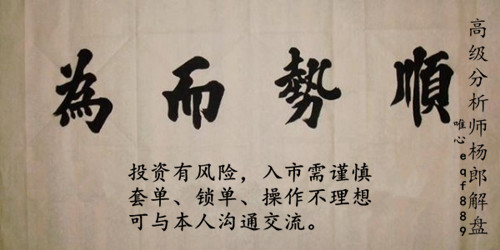 順勢而為
高级分析师杨郎解盘
唯心eqf8889
投资有风险，入市需谨慎
套单、锁单、操作不理想
可与本人沟通交流。